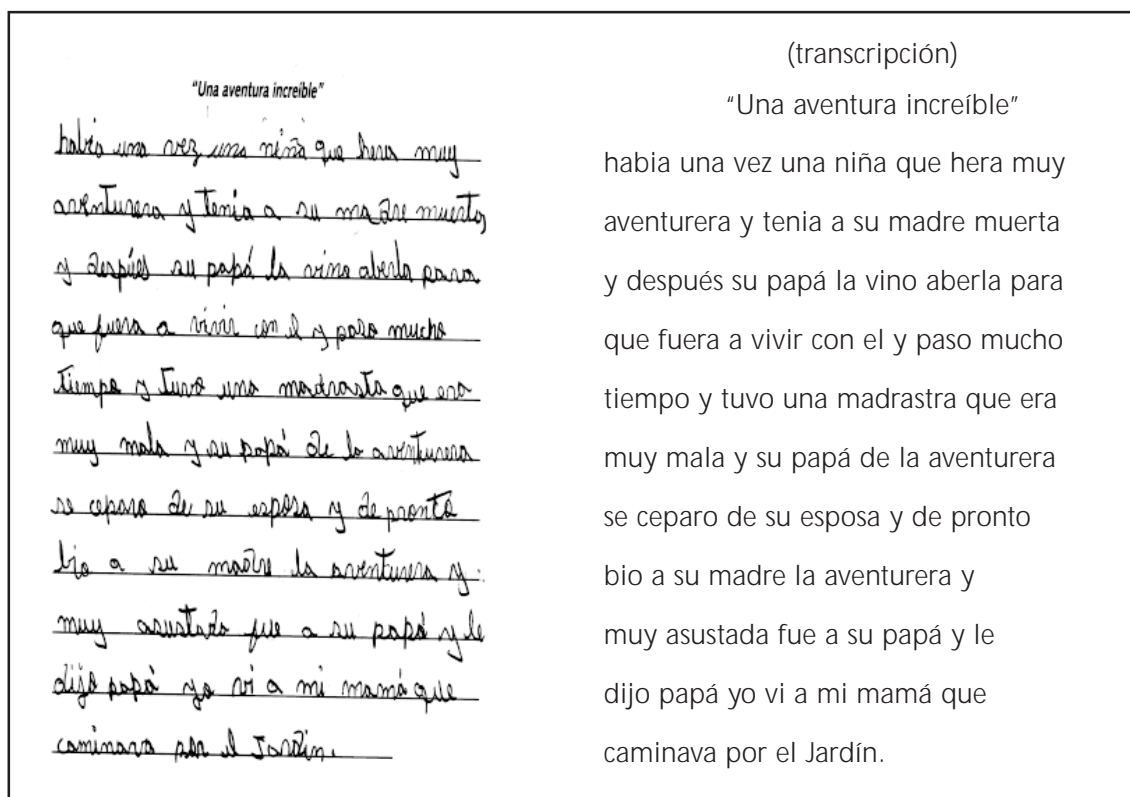 "Una aventura increíble"
habia una vez una niña que hera muy
aventurera y tenia a su madre muerta
y despúes su papá la vino aberla para
que fuera a vivir con el y paso mucho
tiempo y tuvo una madrasta que era
muy mala y su papá de la aventurera
se ceparo de su esposa y de pronto
bio a su madre la aventurera y
muy asustada fue a su papá y le
dijo papá yo vi a mi mamá que
caminava por el Jardin.
(transcripción)
"Una aventura increíble"
habia una vez una niña que hera muy
aventurera y tenia a su madre muerta
y después su papá la vino aberla para
que fuera a vivir con el y paso mucho
tiempo y tuvo una madrastra que era
muy mala y su papá de la aventurera
se ceparo de su esposa y de pronto
bio a su madre la aventurera y
muy asustada fue a su papá y le
dijo papá yo vi a mi mamá que
caminava por el Jardín.